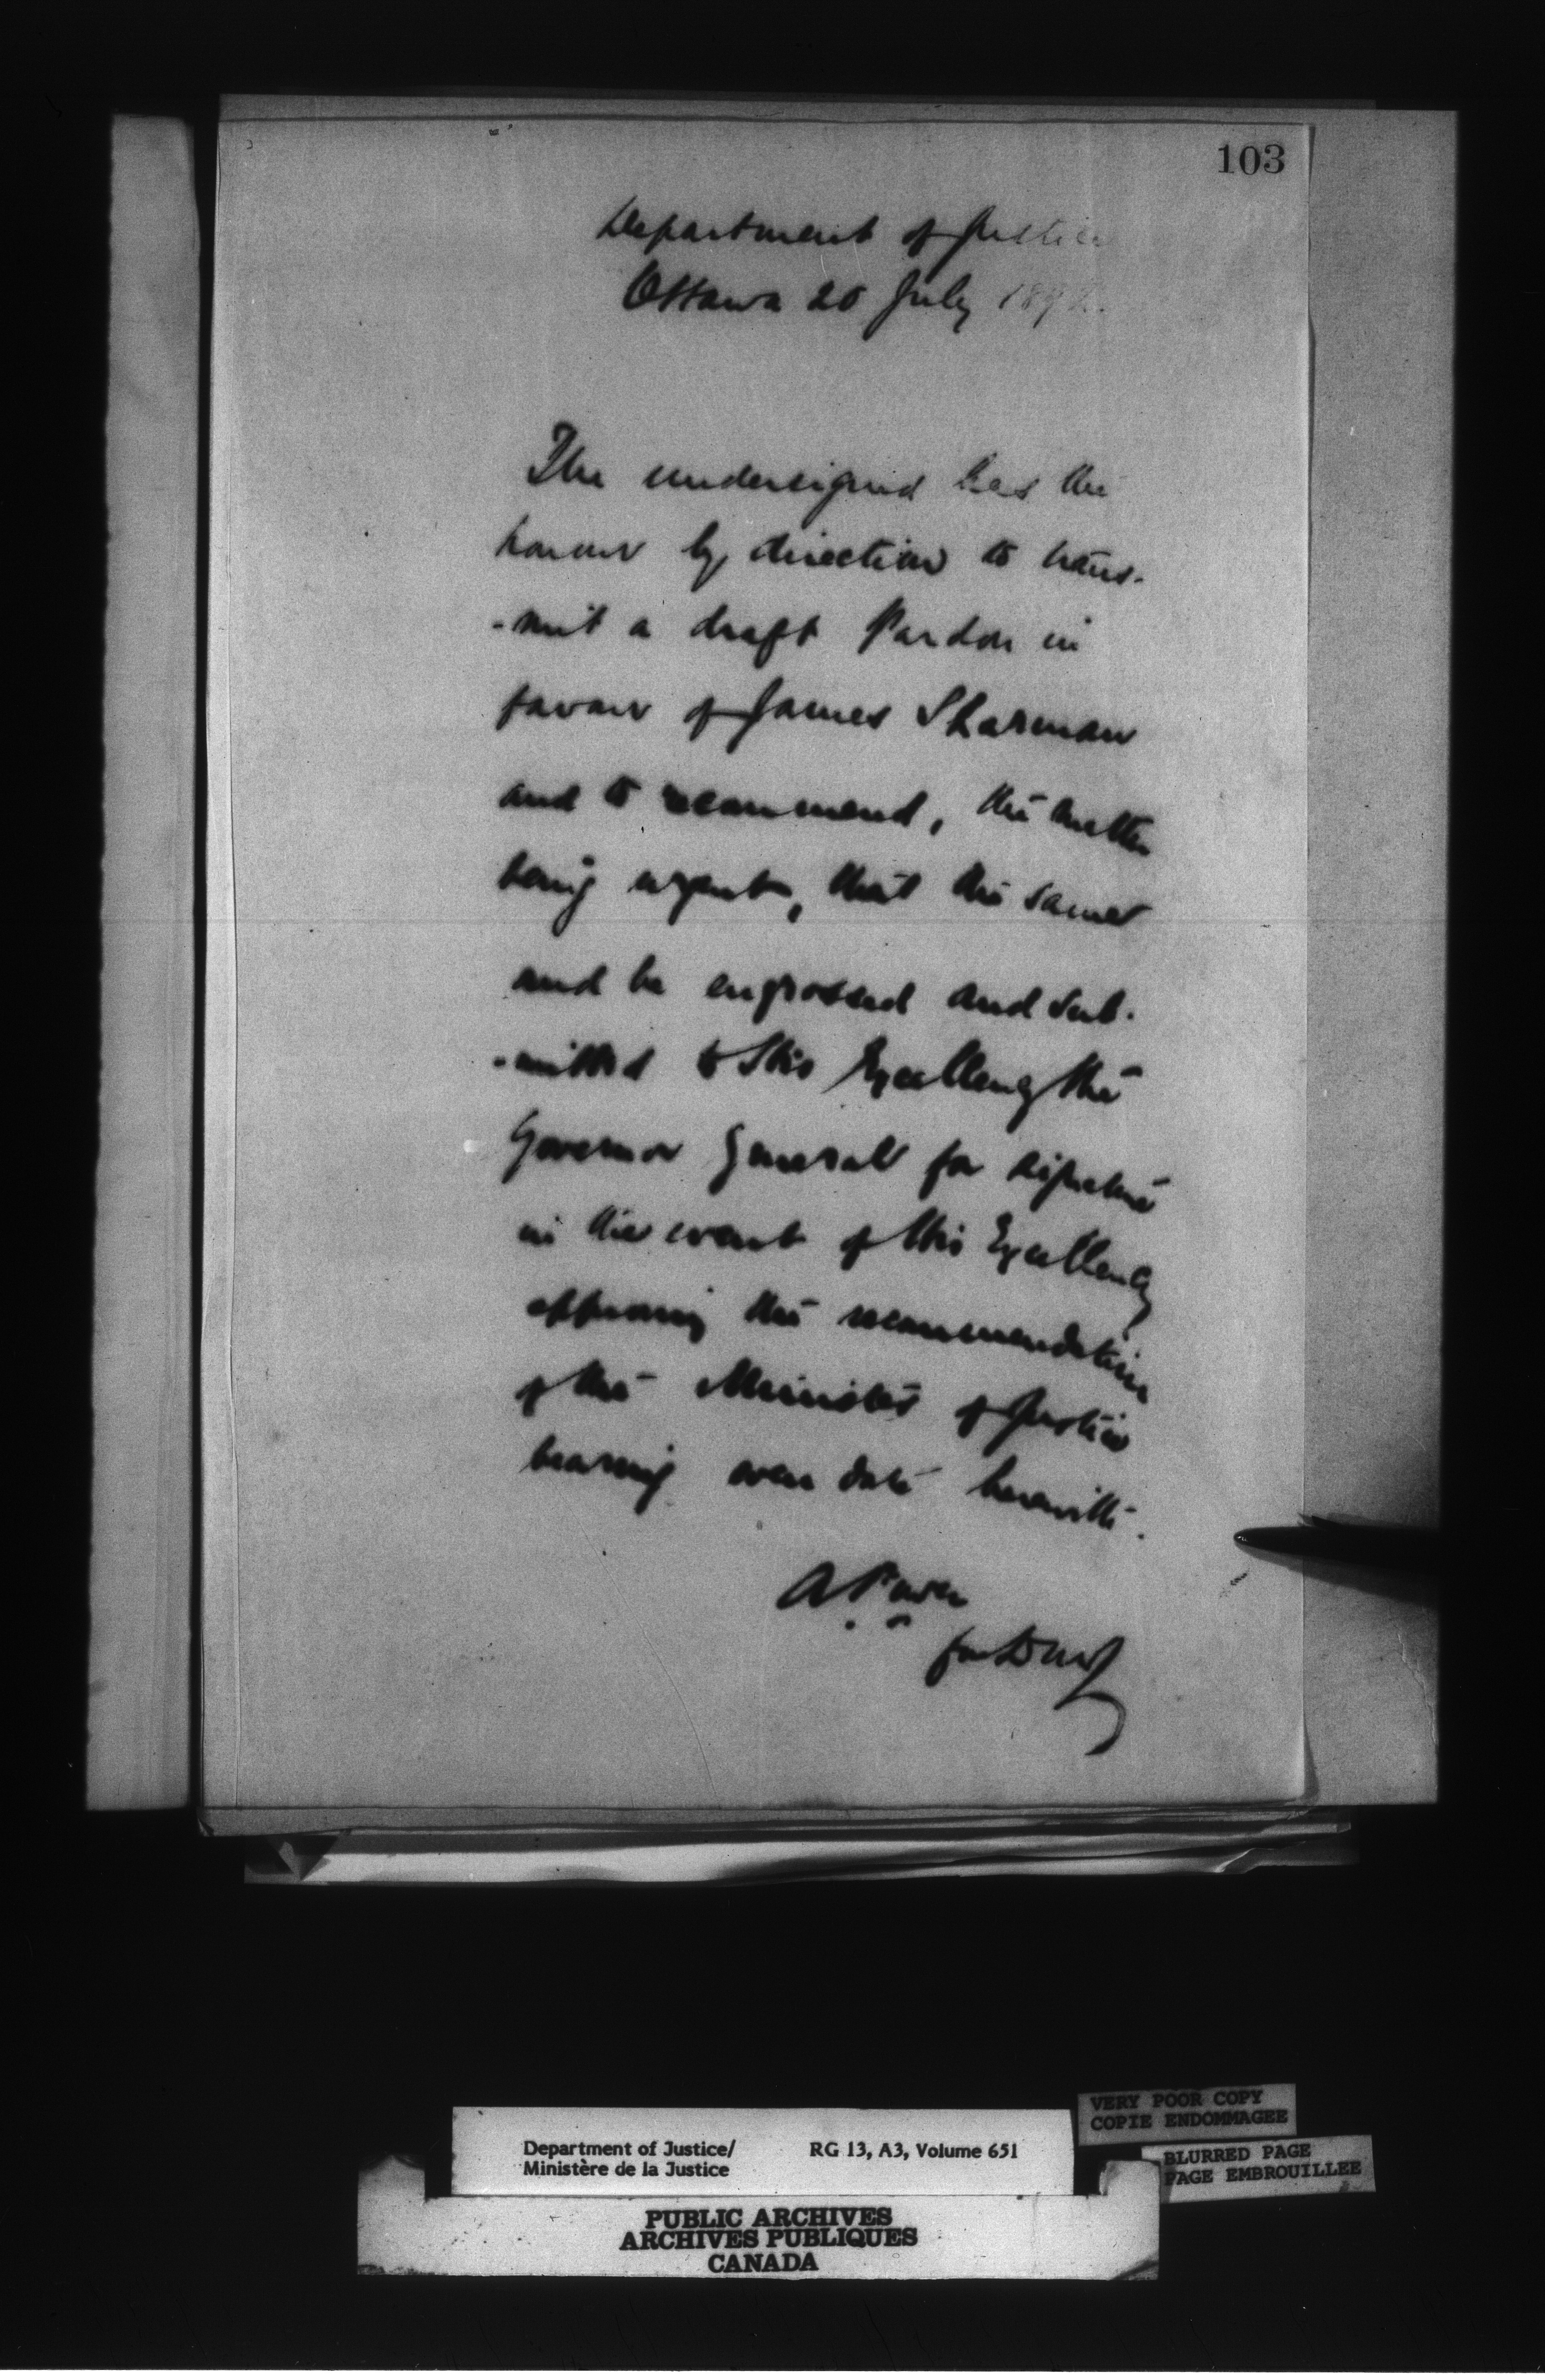 103
Department of Justice
Ottawa 20 July 1892.
The undersigned has the
honour by direction to trans-
-mit a draft Pardon in
favour of James Sharman
and to recommend, the matter
being urgent, that the same
and be engrossed and sub-
-mitted to His Excellency the
Governor General for signature
in the event of His Excellency
approving the recommendation
of the Minister of Justice
bearing even date herewith.
A Power
for D M J
Department of Justice/ RG 13, A3, Volume 651
Ministère de la Justice
VERY POOR COPY
COPIE ENDOMMAGEE
BLURRED PAGE
PAGE EMBROUILLEE
PUBLIC ARCHIVES
ARCHIVES PUBLIQUES
CANADA